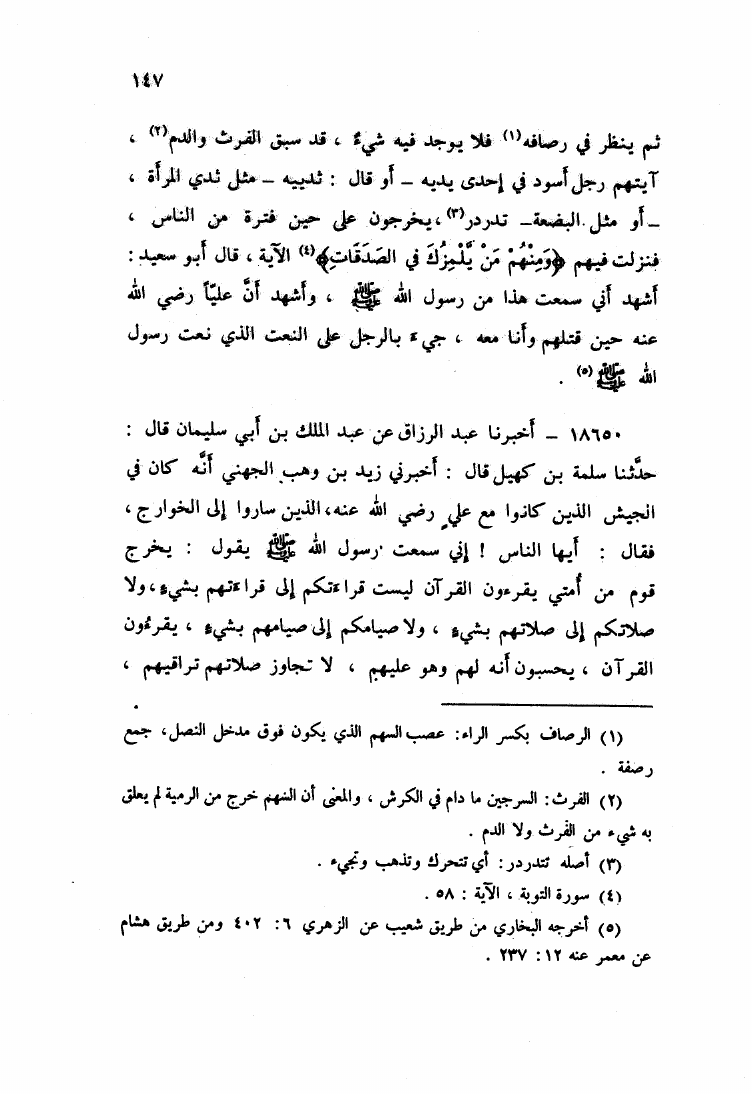 ١٤٧
ثم ينظر في رصافه(١) فلا يوجد فيه شيءٌ ، قد سبق الفرث والدم(٢) ،
آيتهم رجل أسود في إحدى يديه - أو قال : ثدييه - مثل ثدي المرأة ،
- أو مثل البضعة- تدردر(٣)، يخرجون على حين فترة من الناس ،
فنزلت فيهم ﴿وَمِنْهُمْ مَنْ يَلْمِزُكَ في الصَدَقَاتِ﴾(٤) الآية ، قال أبو سعيد :
أشهد أني سمعت هذا من رسول الله ﷺ ، وأشهد أنَّ عليّاً رضي الله
عنه حين قتلهم وأنا معه ، جيء بالرجل على النعت الذي نعت رسول
الله ﷺ(٥) .
١٨٦٥٠ - أخبرنا عبد الرزاق عن عبد الملك بن أبي سليمان قال :
حدَّثنا سلمة بن كهيل قال : أخبرني زيد بن وهب الجهني أنَّه كان في
الجيش الذين كانوا مع علي رضي الله عنه، الذين ساروا إلى الخوارج ،
فقال : أيها الناس ! إني سمعت رسول الله ﷺ يقول : يخرج
قوم من أُمتي يقرءون القرآن ليست قراءتكم إلى قراءتهم بشيءٍ، ولا
صلاتكم إلى صلاتهم بشيءٍ ، ولا صيامكم إلى صيامهم بشيءٍ ، يقرءُون
القرآن ، يحسبون أنه لهم وهو عليهم ، لا تجاوز صلاتهم تراقيهم ،
(١) الرصاف بكسر الراء: عصب السهم الذي يكون فوق مدخل النصل، جمع
رصفة .
(٢) الفرث : السرجين ما دام في الكرش ، والمعنى أن السهم خرج من الرمية لم يعلق
به شيء من الفرث ولا الدم .
(٣) أصله تتدردر : أي تتحرك وتذهب وتجيء .
(٤) سورة التوبة ، الآية : ٥٨ .
(٥) أخرجه البخاري من طريق شعيب عن الزهري ٦ : ٤٠٢ ومن طريق هشام
عن معمر عنه ١٢ : ٢٣٧ .